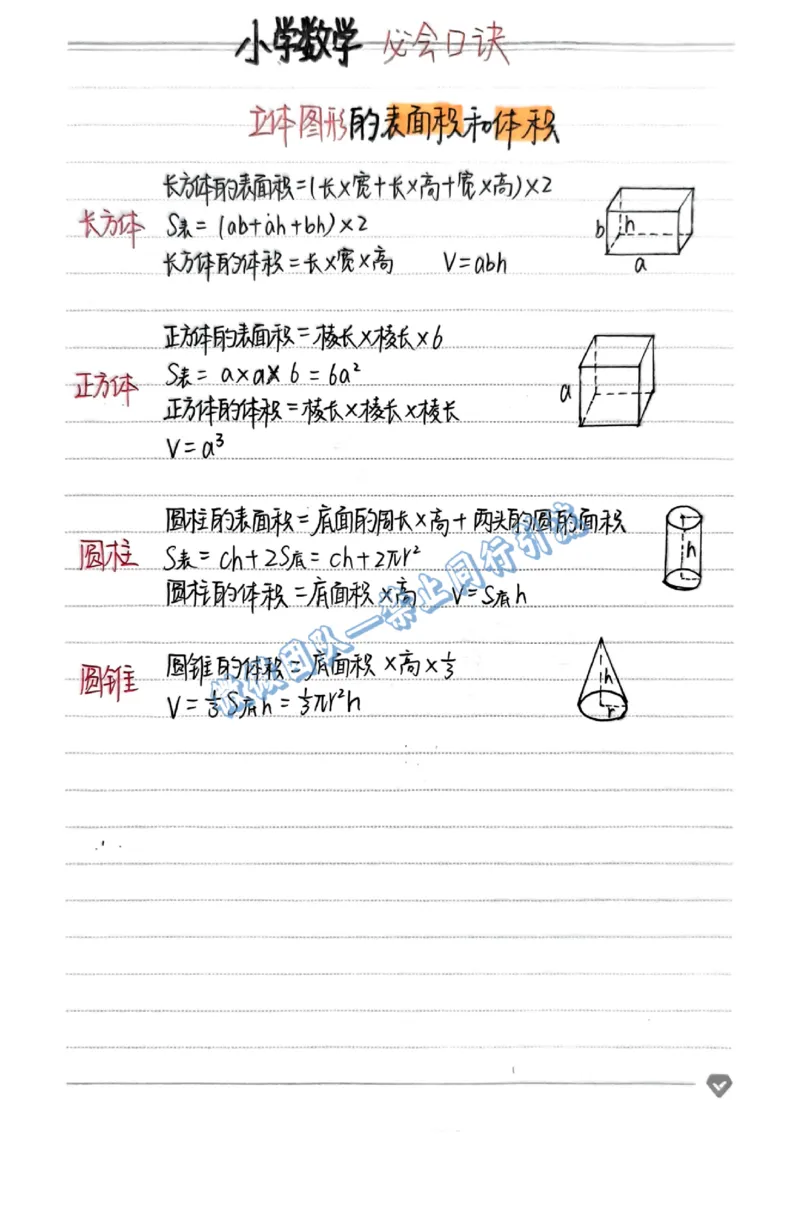 小学数学 必会口诀
立体图形的表面积和体积
长方体的表面积=(长×宽+长×高+宽×高)×2
长方体 S表=(ab+ah+bh)×2
长方体的体积=长×宽×高 V=abh
b h
a
正方体的表面积=棱长×棱长×6
正方体 S表= a×a×6=6a²
正方体的体积=棱长×棱长×棱长
V=a³
a
圆柱的表面积=底面的周长×高+两头的圆的面积
圆柱 S表=ch+2S底=ch+2πr²
圆柱的体积=底面积×高 V=S底h
h
圆锥 圆锥的体积=底面积×高×⅓
V=⅓S底h=⅓πr²h
h
r
团队—禁止同行引流